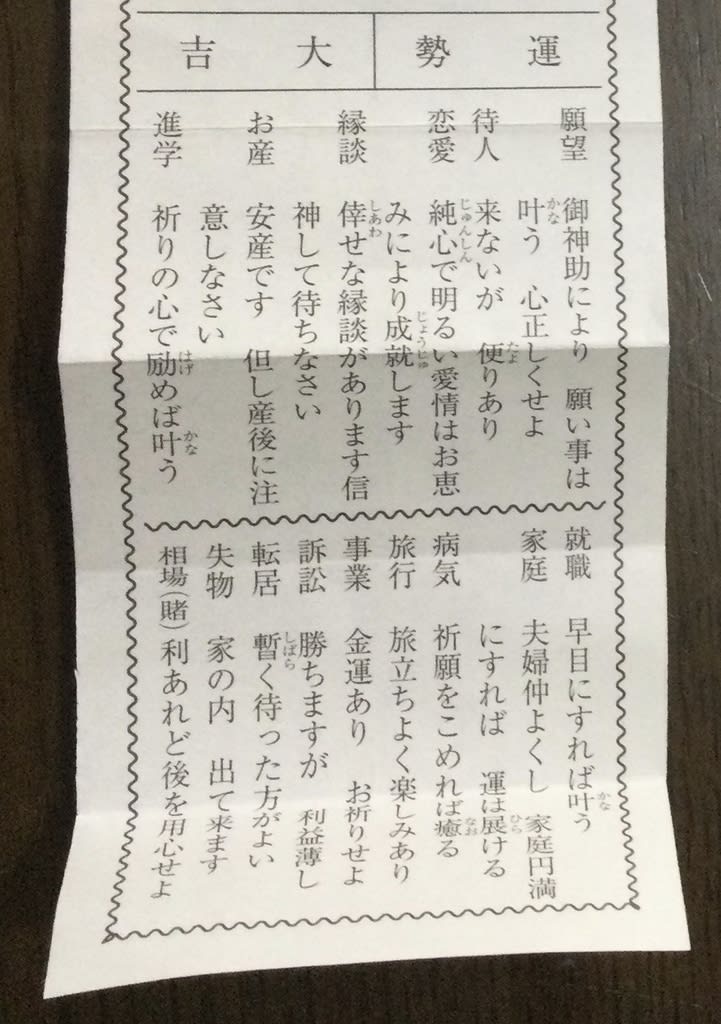 運勢 大吉
願望 御神助により 願い事は
叶う 心正しくせよ
待人 来ないが 便りあり
恋愛 純心で明るい愛情はお恵
みにより成就します
縁談 倖せな縁談があります信
神して待ちなさい
お産 安産です 但し産後に注
意しなさい
進学 祈りの心で励めば叶う
就職 早目にすれば叶う
家庭 夫婦仲よくし 家庭円満
にすれば 運は展ける
病気 祈願をこめれば癒る
旅行 旅立ちよく楽しみあり
事業 金運あり お祈りせよ
訴訟 勝ちますが 利益薄し
転居 暫く待った方がよい
失物 家の内 出て来ます
相場(賭) 利あれど後を用心せよ